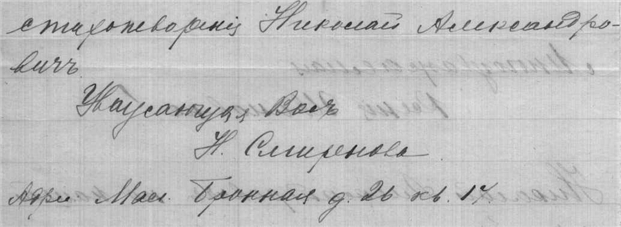 стихотворенія Николай Александро-
вичъ
Уважающая Васъ
Н. Смирнова.
Адр. Мал. Бронная д. 26 кв. 14